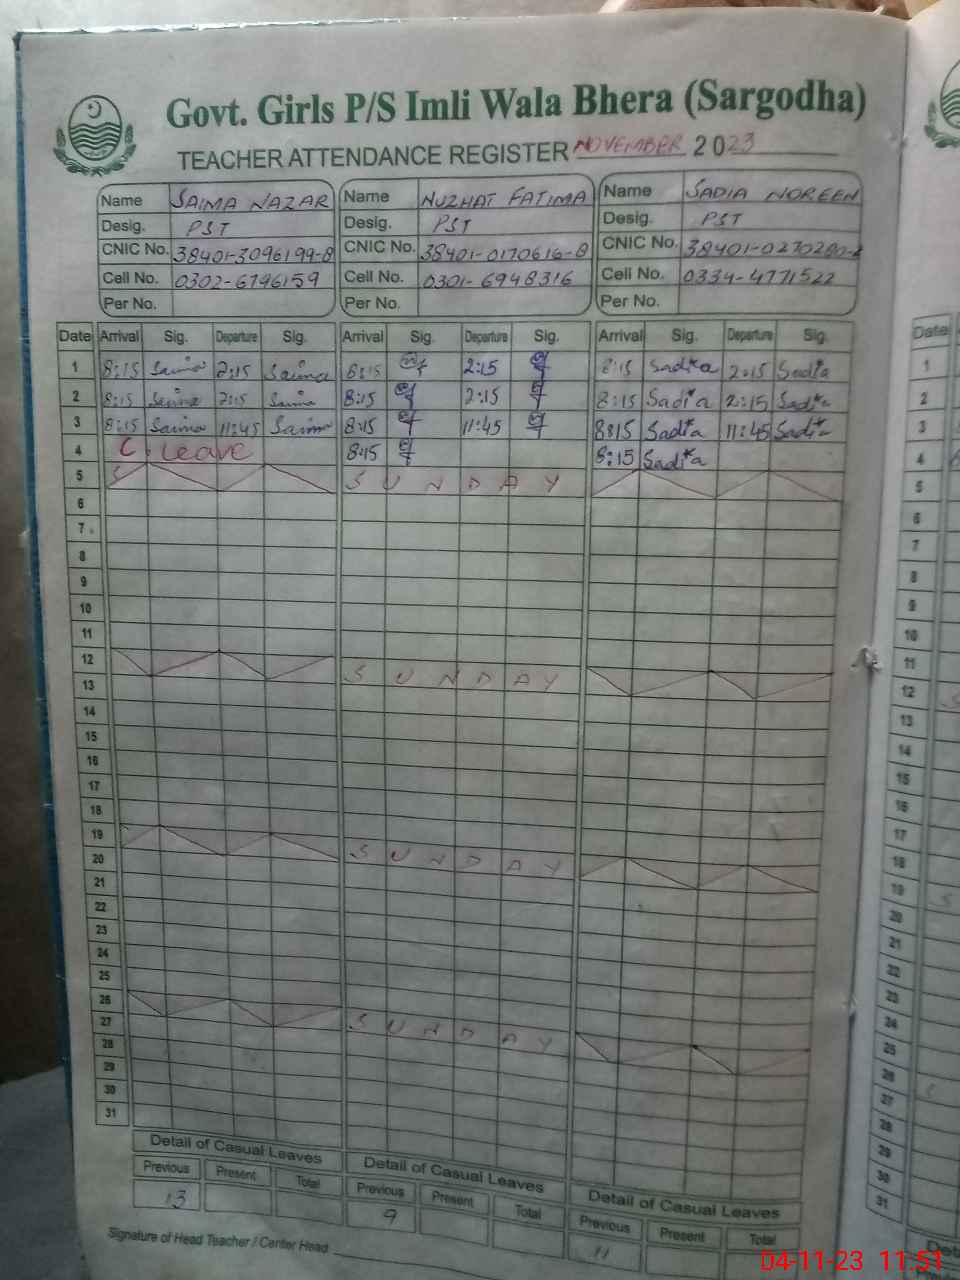 Govt. Girls P/S Imli Wala Bhera (Sargodha)
TEACHER ATTENDANCE REGISTER NOVEMBER 2023
Name SAIMA NAZAR Name NUZHAT FATIMA Name SADIA NOREEN
Desig. PST Desig. PST Desig. PST
CNIC No. 38401-3096199-8 CNIC No. 38401-0170616-8 CNIC No.
Cell No. 0302-6796159 Cell No. 0301-6948316 Cell No. 0334-4771522
Per No. Per No. Per No.
Date Arrival Sig. Departure Sig. Arrival Sig. Departure Sig. Arrival Sig. Departure Sig.
1 8:15 Saima 2:15 Saima 8:15 2:15 8:15 Sadia 2:15 Sadia
2 8:15 Saima 2:15 Saima 8:15 2:15 8:15 Sadia 2:15 Sadia
3 8:15 Saima 11:45 Saima 8:15 11:45 8:15 Sadia 11:45 Sadia
4 C. leave 8:15 8:15 Sadia
5 S SUNDAY
6
7
8
9
10
11
12 SUNDAY
13
14
15
16
17
18
19 SUNDAY
20
21
22
23
24
25
26 SUNDAY
27
28
29
30
31
Detail of Casual Leaves Detail of Casual Leaves Detail of Casual Leaves
Previous Present Total Previous Present Total Previous Present Total
13 9 11
Signature of Head Teacher / Center Head
Date
1
2
3
4
5
6
7
8
9
10
11
12 S
13
14
15
16
17
18
19 S
20
21
22
23
24
25
26 S
27
28
29
30
31
04-11-23 11:51